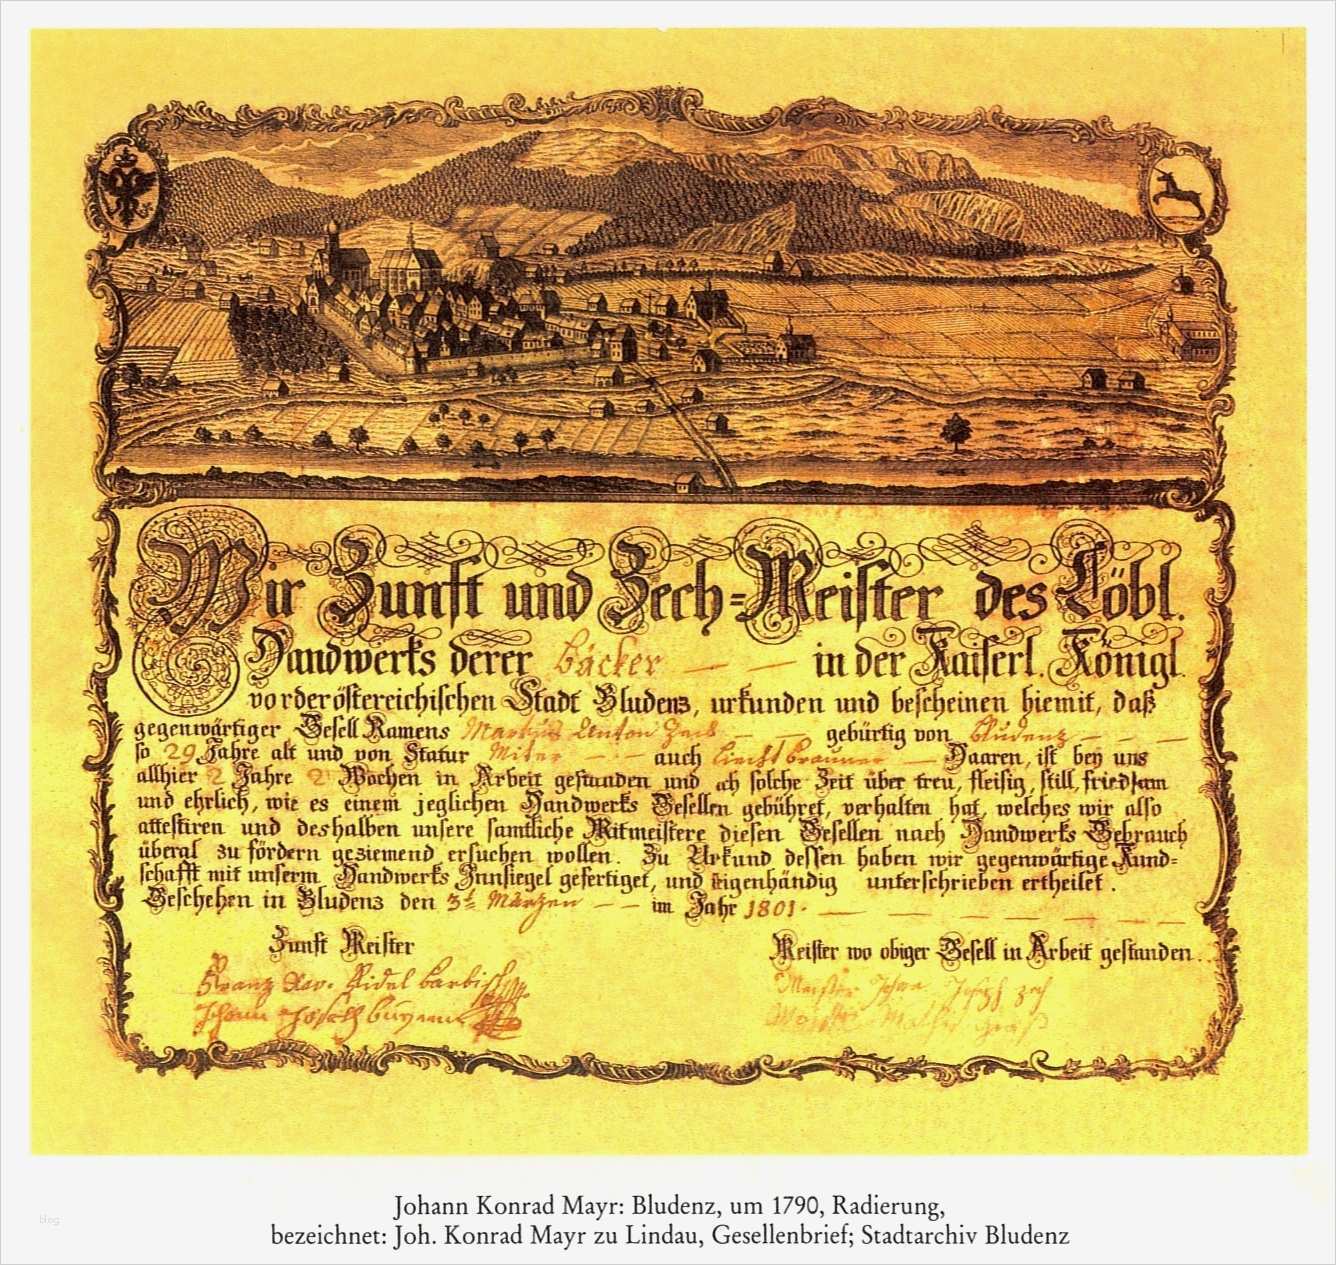 Wir Zunft und Zech=Meister des Löbl.
Handwerks derer Bäcker — — in der Kaiserl. Königl.
vorderöstereichischen Stadt Bludenz, urkunden und bescheinen hiemit, daß
gegenwärtiger Gesell Namens Markus Anton Zech — — gebürtig von Bludenz — — —
so 29 Jahre alt und von Statur Miter — — auch Liecht Brauner — Haaren, ist bey uns
allhier 2 Jahre 2 Wochen in Arbeit gestanden und solche Zeit über treu, fleisig, still, friedsam
und ehrlich, wie es einem jeglichen Handwerks Gesellen gebühret, verhalten hat, welches wir also
attestiren und deshalben unsere samtliche Mitmeistere diesen Gesellen nach Handwerks Gebrauch
überal zu fördern geziemend ersuchen wollen. Zu Urkund dessen haben wir gegenwärtige Kund=
schafft mit unserm Handwerks Innsiegel gefertiget, und eigenhändig unterschrieben ertheilet.
Geschehen in Bludenz den 3t Märzen — — im Jahr 1801.
Zunft Meister
Meister wo obiger Gesell in Arbeit gestanden.
Franz Xav. Fidel
Johann Joseph
Meister Johann Joseph Zech
Meister
blog
Johann Konrad Mayr: Bludenz, um 1790, Radierung,
bezeichnet: Joh. Konrad Mayr zu Lindau, Gesellenbrief; Stadtarchiv Bludenz